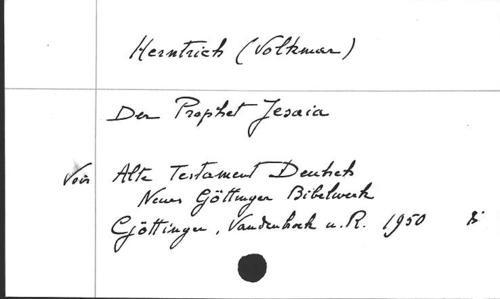 Herntrich (Volkmar)
Der Prophet Jesaia
Voir Alte Testament Deutsch
Neues Göttinger Bibelwerk
Göttingen, Vandenhoek u. R. 1950